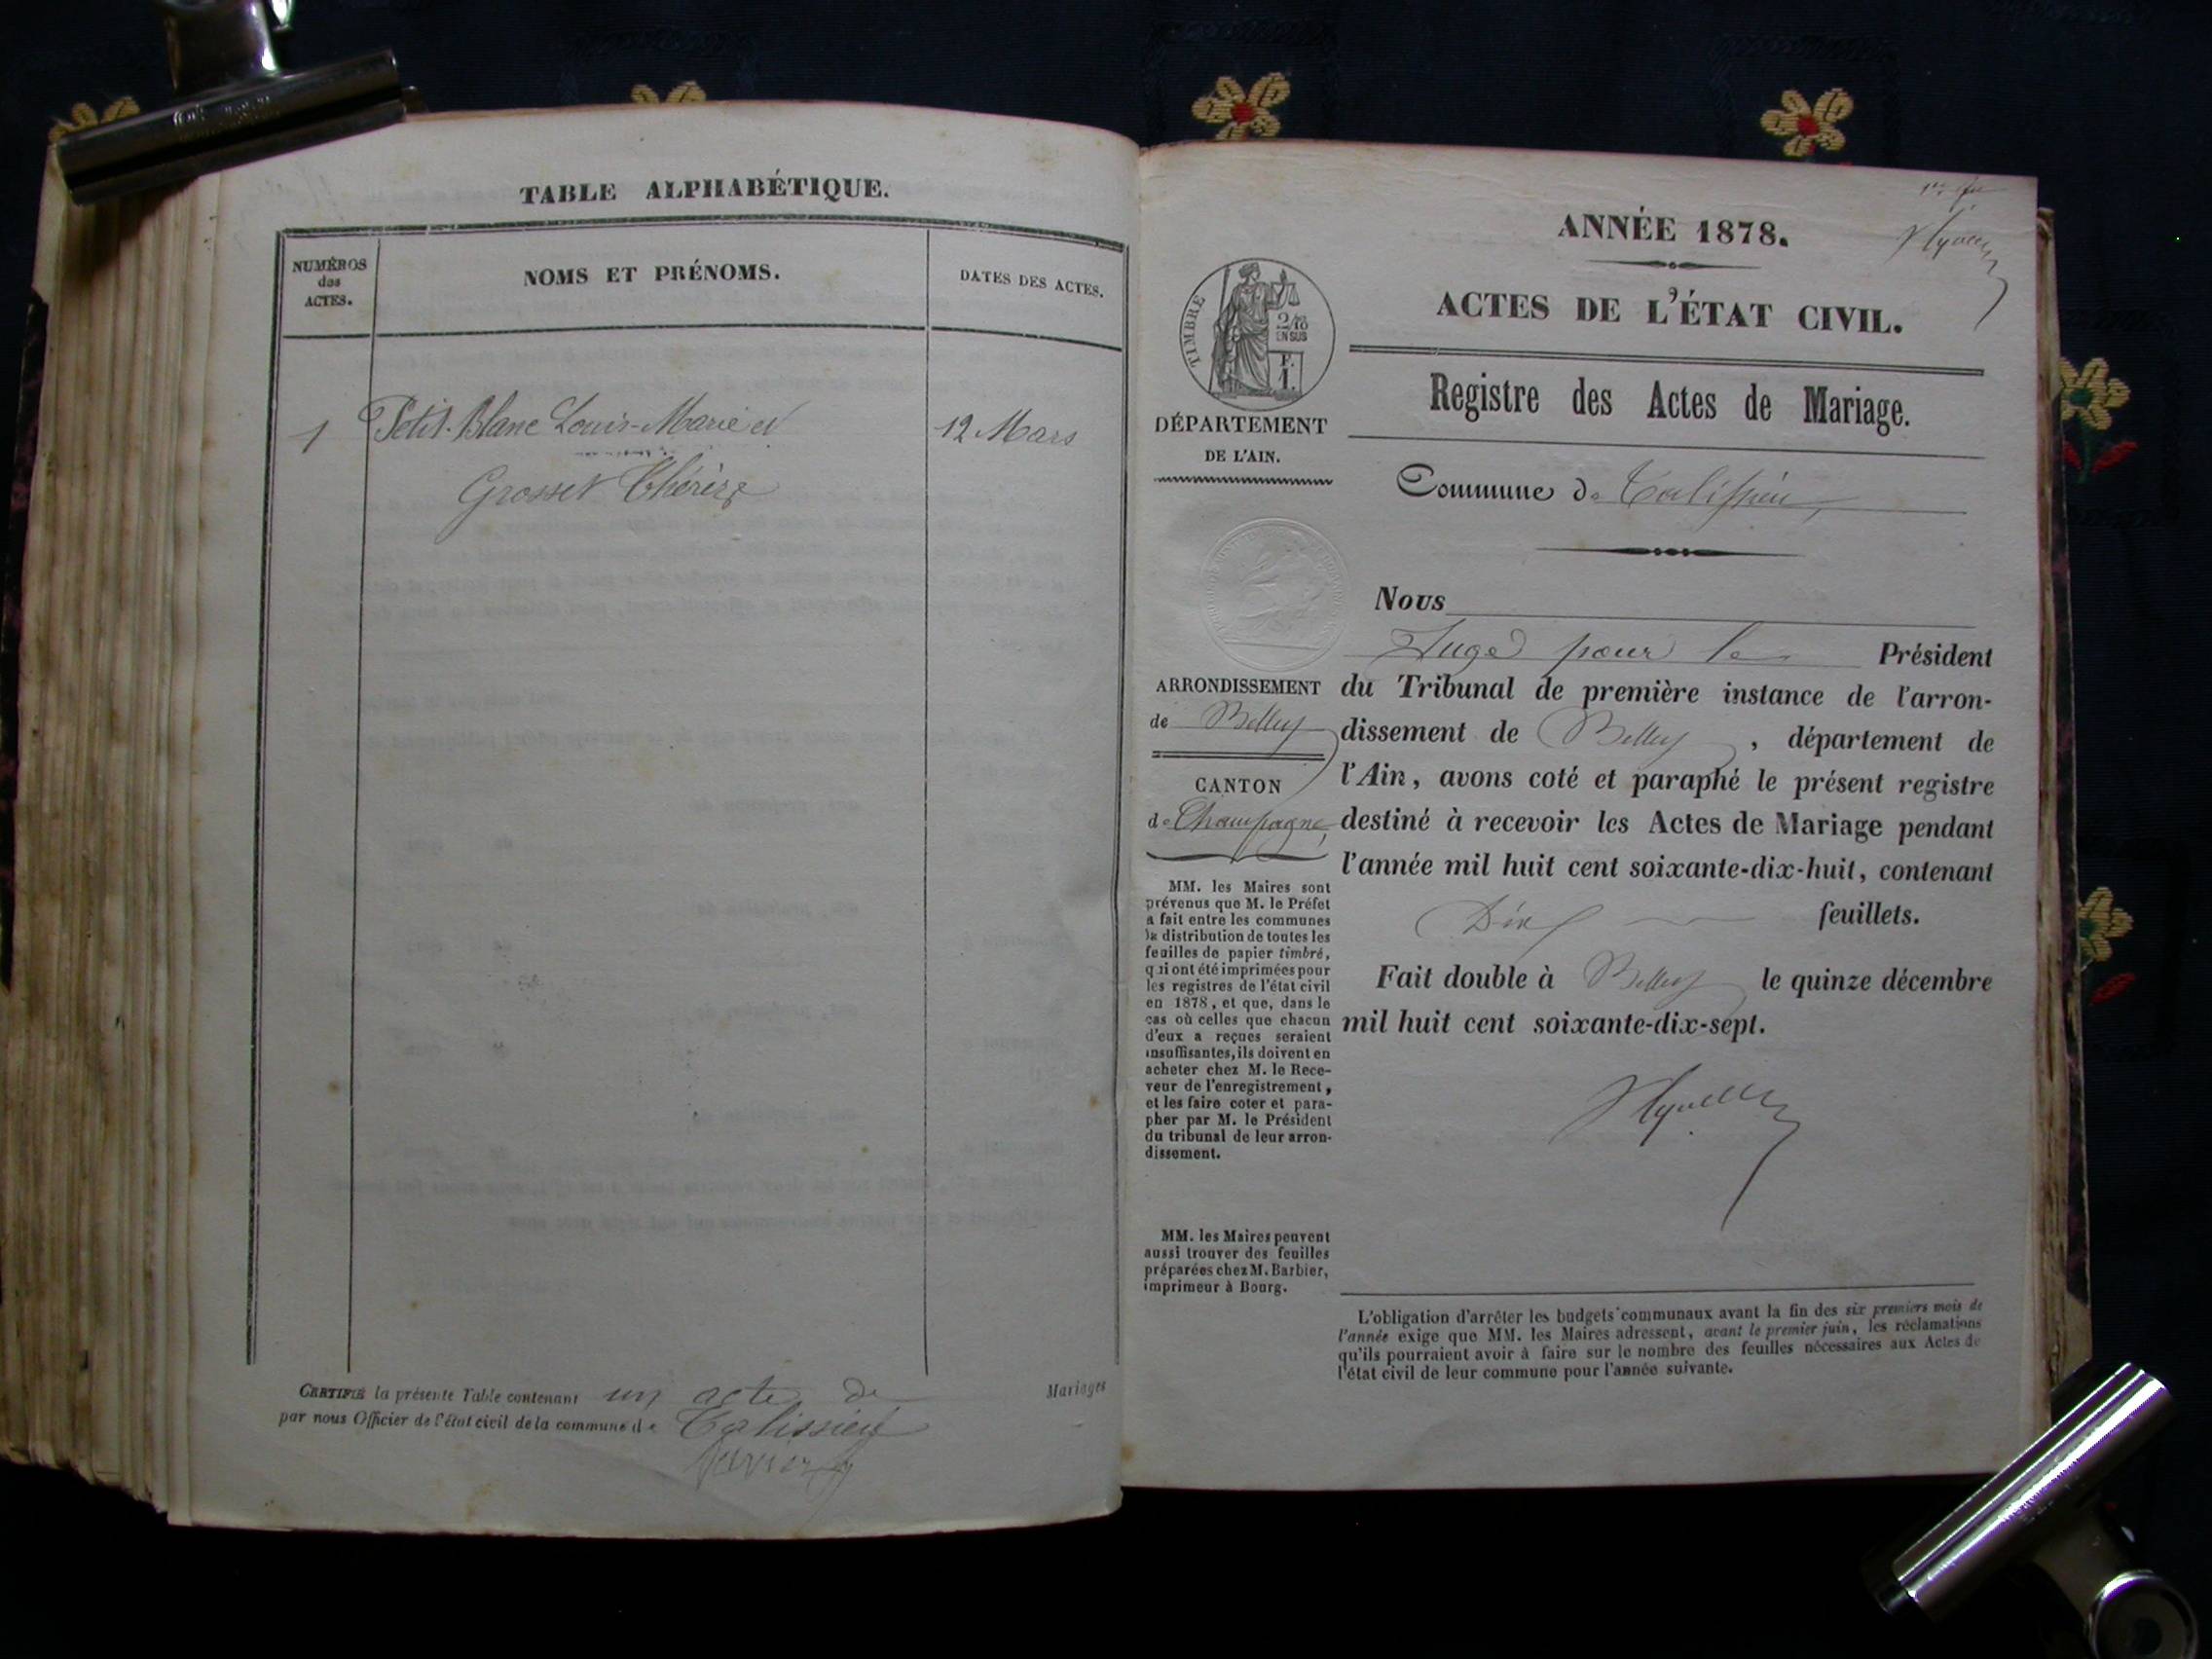 TABLE ALPHABÉTIQUE.
NUMÉROS
des
ACTES.
NOMS ET PRÉNOMS.
DATES DES ACTES.
1
Petit-Blanc Louis-Marie et
12 Mars
Grosset Thérèse
CERTIFIÉ la présente Table contenant un acte de Mariages
par nous Officier de l'état civil de la commune de Talissieu
ANNÉE 1878.
ACTES DE L'ÉTAT CIVIL.
Registre des Actes de Mariage.
TIMBRE
2/10
EN SUS
F.
1.
DÉPARTEMENT
DE L'AIN.
Commune de Talissieu
Nous
Juge pour le Président
du Tribunal de première instance de l'arron-
dissement de Belley, département de
l'Ain, avons coté et paraphé le présent registre
destiné à recevoir les Actes de Mariage pendant
l'année mil huit cent soixante-dix-huit, contenant
Dix feuillets.
Fait double à Belley le quinze décembre
mil huit cent soixante-dix-sept.
ARRONDISSEMENT
de Belley
CANTON
de Champagne
MM. les Maires sont
prévenus que M. le Préfet
a fait entre les communes
la distribution de toutes les
feuilles de papier timbré,
qui ont été imprimées pour
les registres de l'état civil
en 1878, et que, dans le
cas où celles que chacun
d'eux a reçues seraient
insuffisantes, ils doivent en
acheter chez M. le Rece-
veur de l'enregistrement,
et les faire coter et para-
pher par M. le Président
du tribunal de leur arron-
dissement.
MM. les Maires peuvent
aussi trouver des feuilles
préparées chez M. Barbier,
imprimeur à Bourg.
L'obligation d'arrêter les budgets communaux avant la fin des six premiers mois de
l'année exige que MM. les Maires adressent, avant le premier juin, les réclamations
qu'ils pourraient avoir à faire sur le nombre des feuilles nécessaires aux Actes de
l'état civil de leur commune pour l'année suivante.